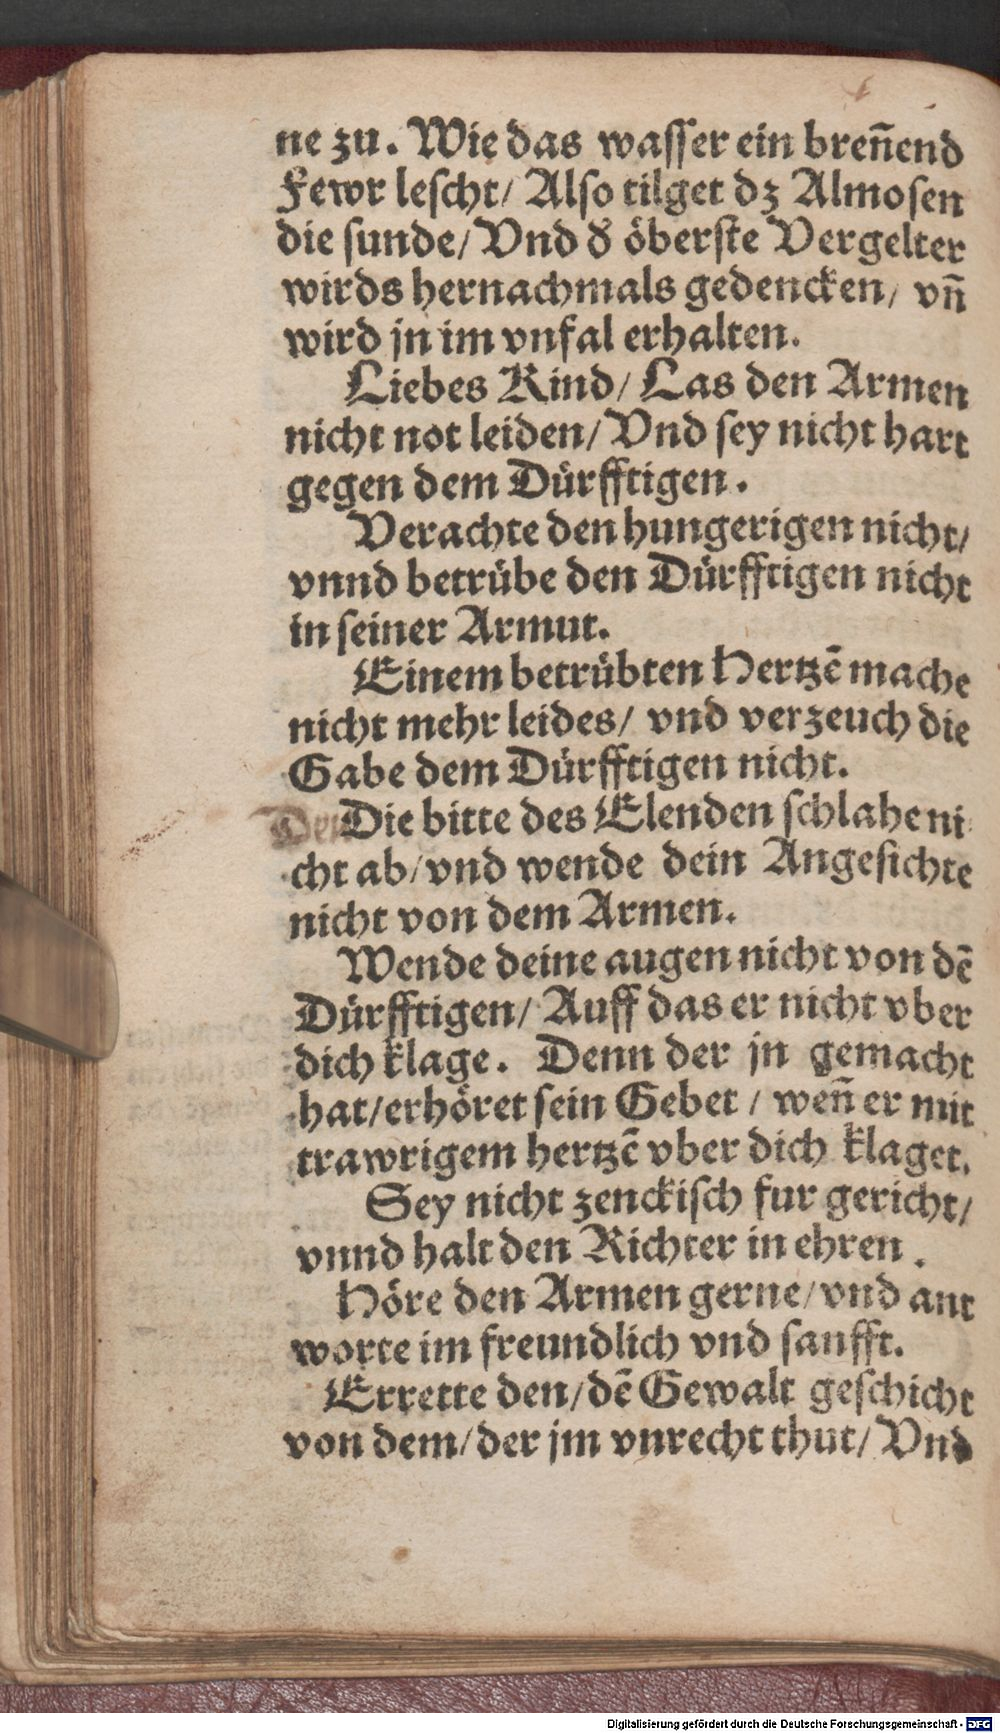 ne zu. Wie das wasser ein breñend
Fewr lescht/ Also tilget dz Almosen
die sunde/ Vnd d̕ öberste Vergelter
wirds hernachmals gedencken/ vñ
wird jn im vnfal erhalten.
Liebes Kind/ Las den Armen
nicht not leiden/ Vnd sey nicht hart
gegen dem Dürfftigen.
Verachte den hungerigen nicht/
vnnd betrübe den Dürfftigen nicht
in seiner Armut.
Einem betrübten Hertzē mache
nicht mehr leides/ vnd verzeuch die
Gabe dem Dürfftigen nicht.
Die bitte des Elenden schlahe ni
cht ab/ vnd wende dein Angesichte
nicht von dem Armen.
Wende deine augen nicht von dē
Dürfftigen/ Auff das er nicht vber
dich klage. Denn der jn gemacht
hat/ erhöret sein Gebet / weñ er mit
trawrigem hertzē vber dich klaget.
Sey nicht zenckisch fur gericht/
vnnd halt den Richter in ehren.
Höre den Armen gerne/ vnd ant
worte im freundlich vnd sanfft.
Errette den/ dē Gewalt geschicht
von dem/ der jm vnrecht thut/ Vnd
Digitalisierung gefördert durch die Deutsche Forschungsgemeinschaft - DFG